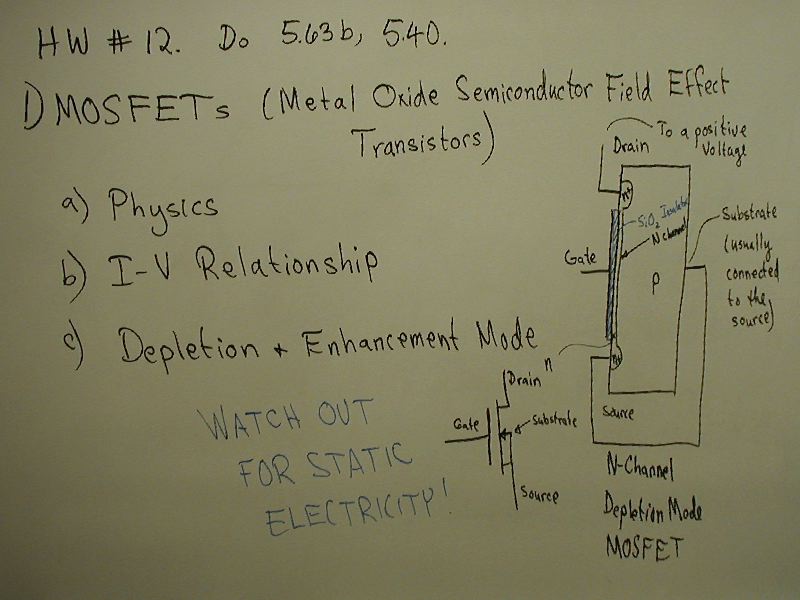 HW # 12. Do 5.63b, 5.40.
1) MOSFETs (Metal Oxide Semiconductor Field Effect
Transistors)
a) Physics
b) I-V Relationship
c) Depletion + Enhancement Mode
WATCH OUT
FOR STATIC
ELECTRICITY!
To a positive
Voltage
Drain
n+
SiO2 Insulator
N channel
Gate
p
Substrate
(usually
connected
to the
source)
n+
n
Source
Drain
Gate
Substrate
Source
N-Channel
Depletion Mode
MOSFET